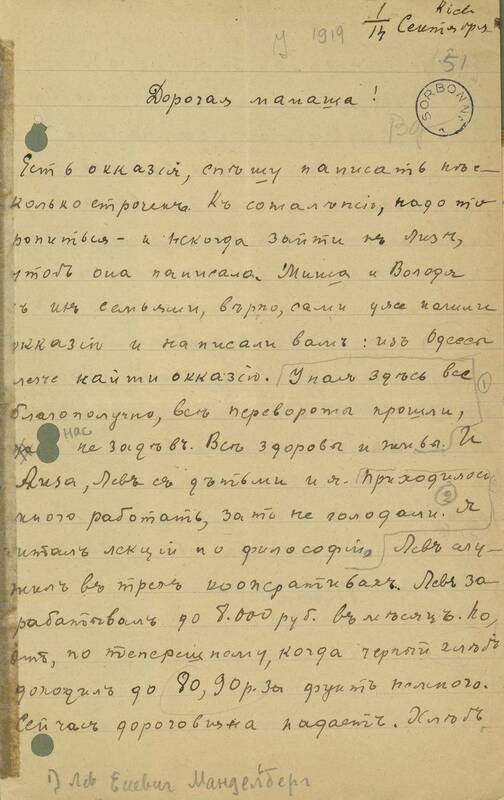 Kiев
1/14 Сентября
У 1919
51
SORBONNE
Дорогая мамаша!
Есть оказкія, спѣшу написать нѣс-
колько строчекъ. Къ сожалѣнію, надо то-
ропиться – и некогда зайти къ Лизѣ,
чтобъ она написала. Миша и Володя
съ ихъ семьями, вѣрно, сами уже нашли
окказію и написали вамъ: изъ Одессы
легче найти окказію. У насъ здѣсь все
благополучно, всѣ перевороты прошли,
насъ не задѣвъ. Всѣ здоровы и живы. И
Лиза, Левъ съ дѣтьми и я. Приходилось
много работать, зато не голодали. Я
читалъ лекціи по философіи, Левъ слу-
жилъ въ трехъ кооперативахъ. Левъ за-
рабатывалъ до 8.000 руб. въ мѣсяцъ. Но,
это, по теперешнему, когда черный хлѣбъ
доходилъ до 80, 90 р. за фунтъ немного.
Сейчасъ дороговизна падаетъ. Хлѣбъ
1) Лев Евсевич Мандельберг